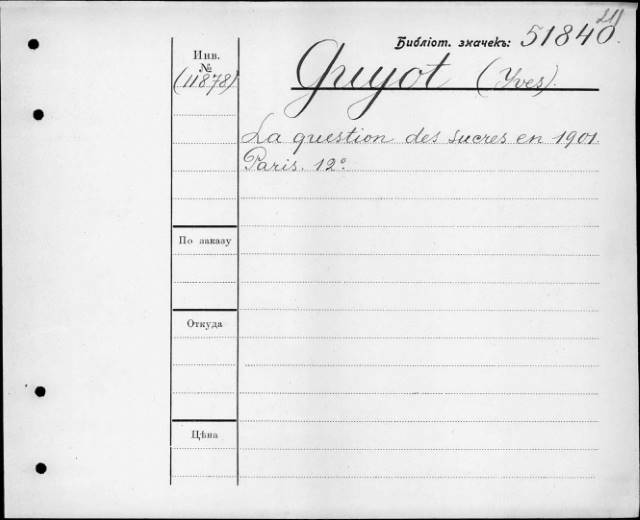 21
Библіот. значекъ: 51840.
Инв.
№
(11878)
Guyot (Yves).
La question des sucres en 1901.
Paris. 12°.
По заказу
Откуда
Цѣна